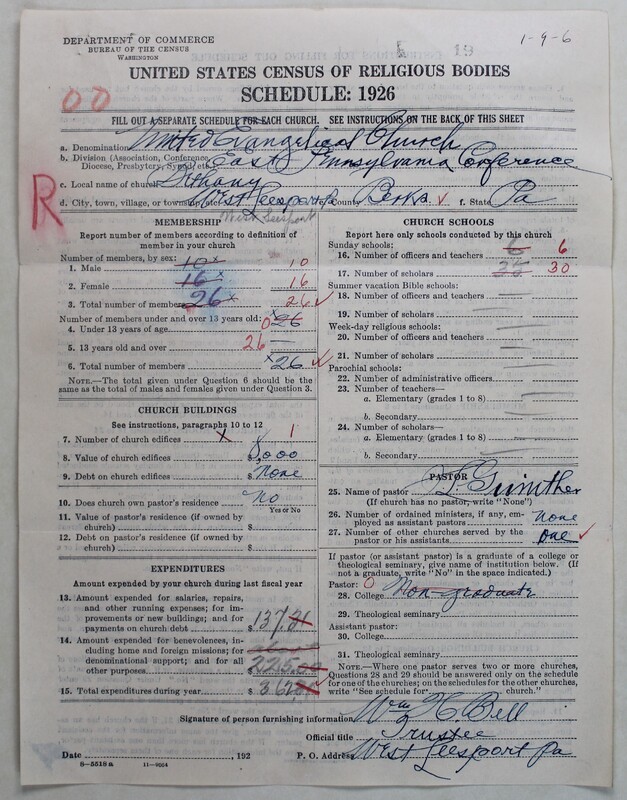 DEPARTMENT OF COMMERCE
BUREAU OF THE CENSUS
WASHINGTON
19
1-9-6
UNITED STATES CENSUS OF RELIGIOUS BODIES
SCHEDULE: 1926
00
FILL OUT A SEPARATE SCHEDULE FOR EACH CHURCH. SEE INSTRUCTIONS ON THE BACK OF THIS SHEET
a. Denomination United Evangelical Church
b. Division (Association, Conference, Diocese, Presbytery, Synod, etc.) East Pennsylvania Conference
c. Local name of church Bethany
d. City, town, village, or township West Leesport Pa County Berks f. State Pa
R
West Leesport
MEMBERSHIP
Report number of members according to definition of
member in your church
Number of members by sex:
1. Male 10 10
2. Female 16 16
3. Total number of members 26 26
Number of members under and over 13 years old:
4. Under 13 years of age 0 26
5. 13 years old and over 26 —
6. Total number of members 26
NOTE.—The total given under Question 6 should be
same as the total of males and females given under Question 3.
CHURCH BUILDINGS
See instructions, paragraphs 10 to 12
7. Number of church edifices X 1
8. Value of church edifices $ 8,000
9. Debt on church edifices $ None
10. Does church own pastor's residence No
Yes or No
11. Value of pastor's residence (if owned by
church) $
12. Debt on pastor's residence (if owned by
church) $
EXPENDITURES
Amount expended by your church during last fiscal year
13. Amount expended for salaries, repairs,
and other running expenses; for im-
provements or new buildings; and for
payments on church debt $ 137.
14. Amount expended for benevolences, in-
cluding home and foreign missions; for
denominational support; and for all
other purposes $ 225.00
15. Total expenditures during year $ 362
CHURCH SCHOOLS
Report here only schools conducted by this church
Sunday schools:
16. Number of officers and teachers 6 6
17. Number of scholars 30
Summer vacation Bible schools:
18. Number of officers and teachers
19. Number of scholars
Week-day religious schools:
20. Number of officers and teachers
21. Number of scholars
Parochial schools:
22. Number of administrative officers
23. Number of teachers—
a. Elementary (grades 1 to 8)
b. Secondary
24. Number of scholars—
a. Elementary (grades 1 to 8)
b. Secondary
PASTOR
25. Name of pastor Gunther
(If church has no pastor, write "None")
26. Number of ordained ministers, if any, em-
ployed as assistant pastors none
27. Number of other churches served by the
pastor or his assistants one
If pastor (or assistant pastor) is a graduate of a college or
theological seminary, give name of institution below. (If
not a graduate, write "No" in the space indicated.)
Pastor: 0
28. College Non-graduate
29. Theological seminary
Assistant pastor:
30. College
31. Theological seminary
NOTE.—Where one pastor serves two or more churches,
Questions 28 and 29 should be answered only on the schedule
for one of the churches; on the schedules for the other churches,
write "See schedule for church."
Signature of person furnishing information Wm H. Bell
Official title Trustee
Date , 192 P. O. Address West Leesport Pa
8-5518a 11-9064